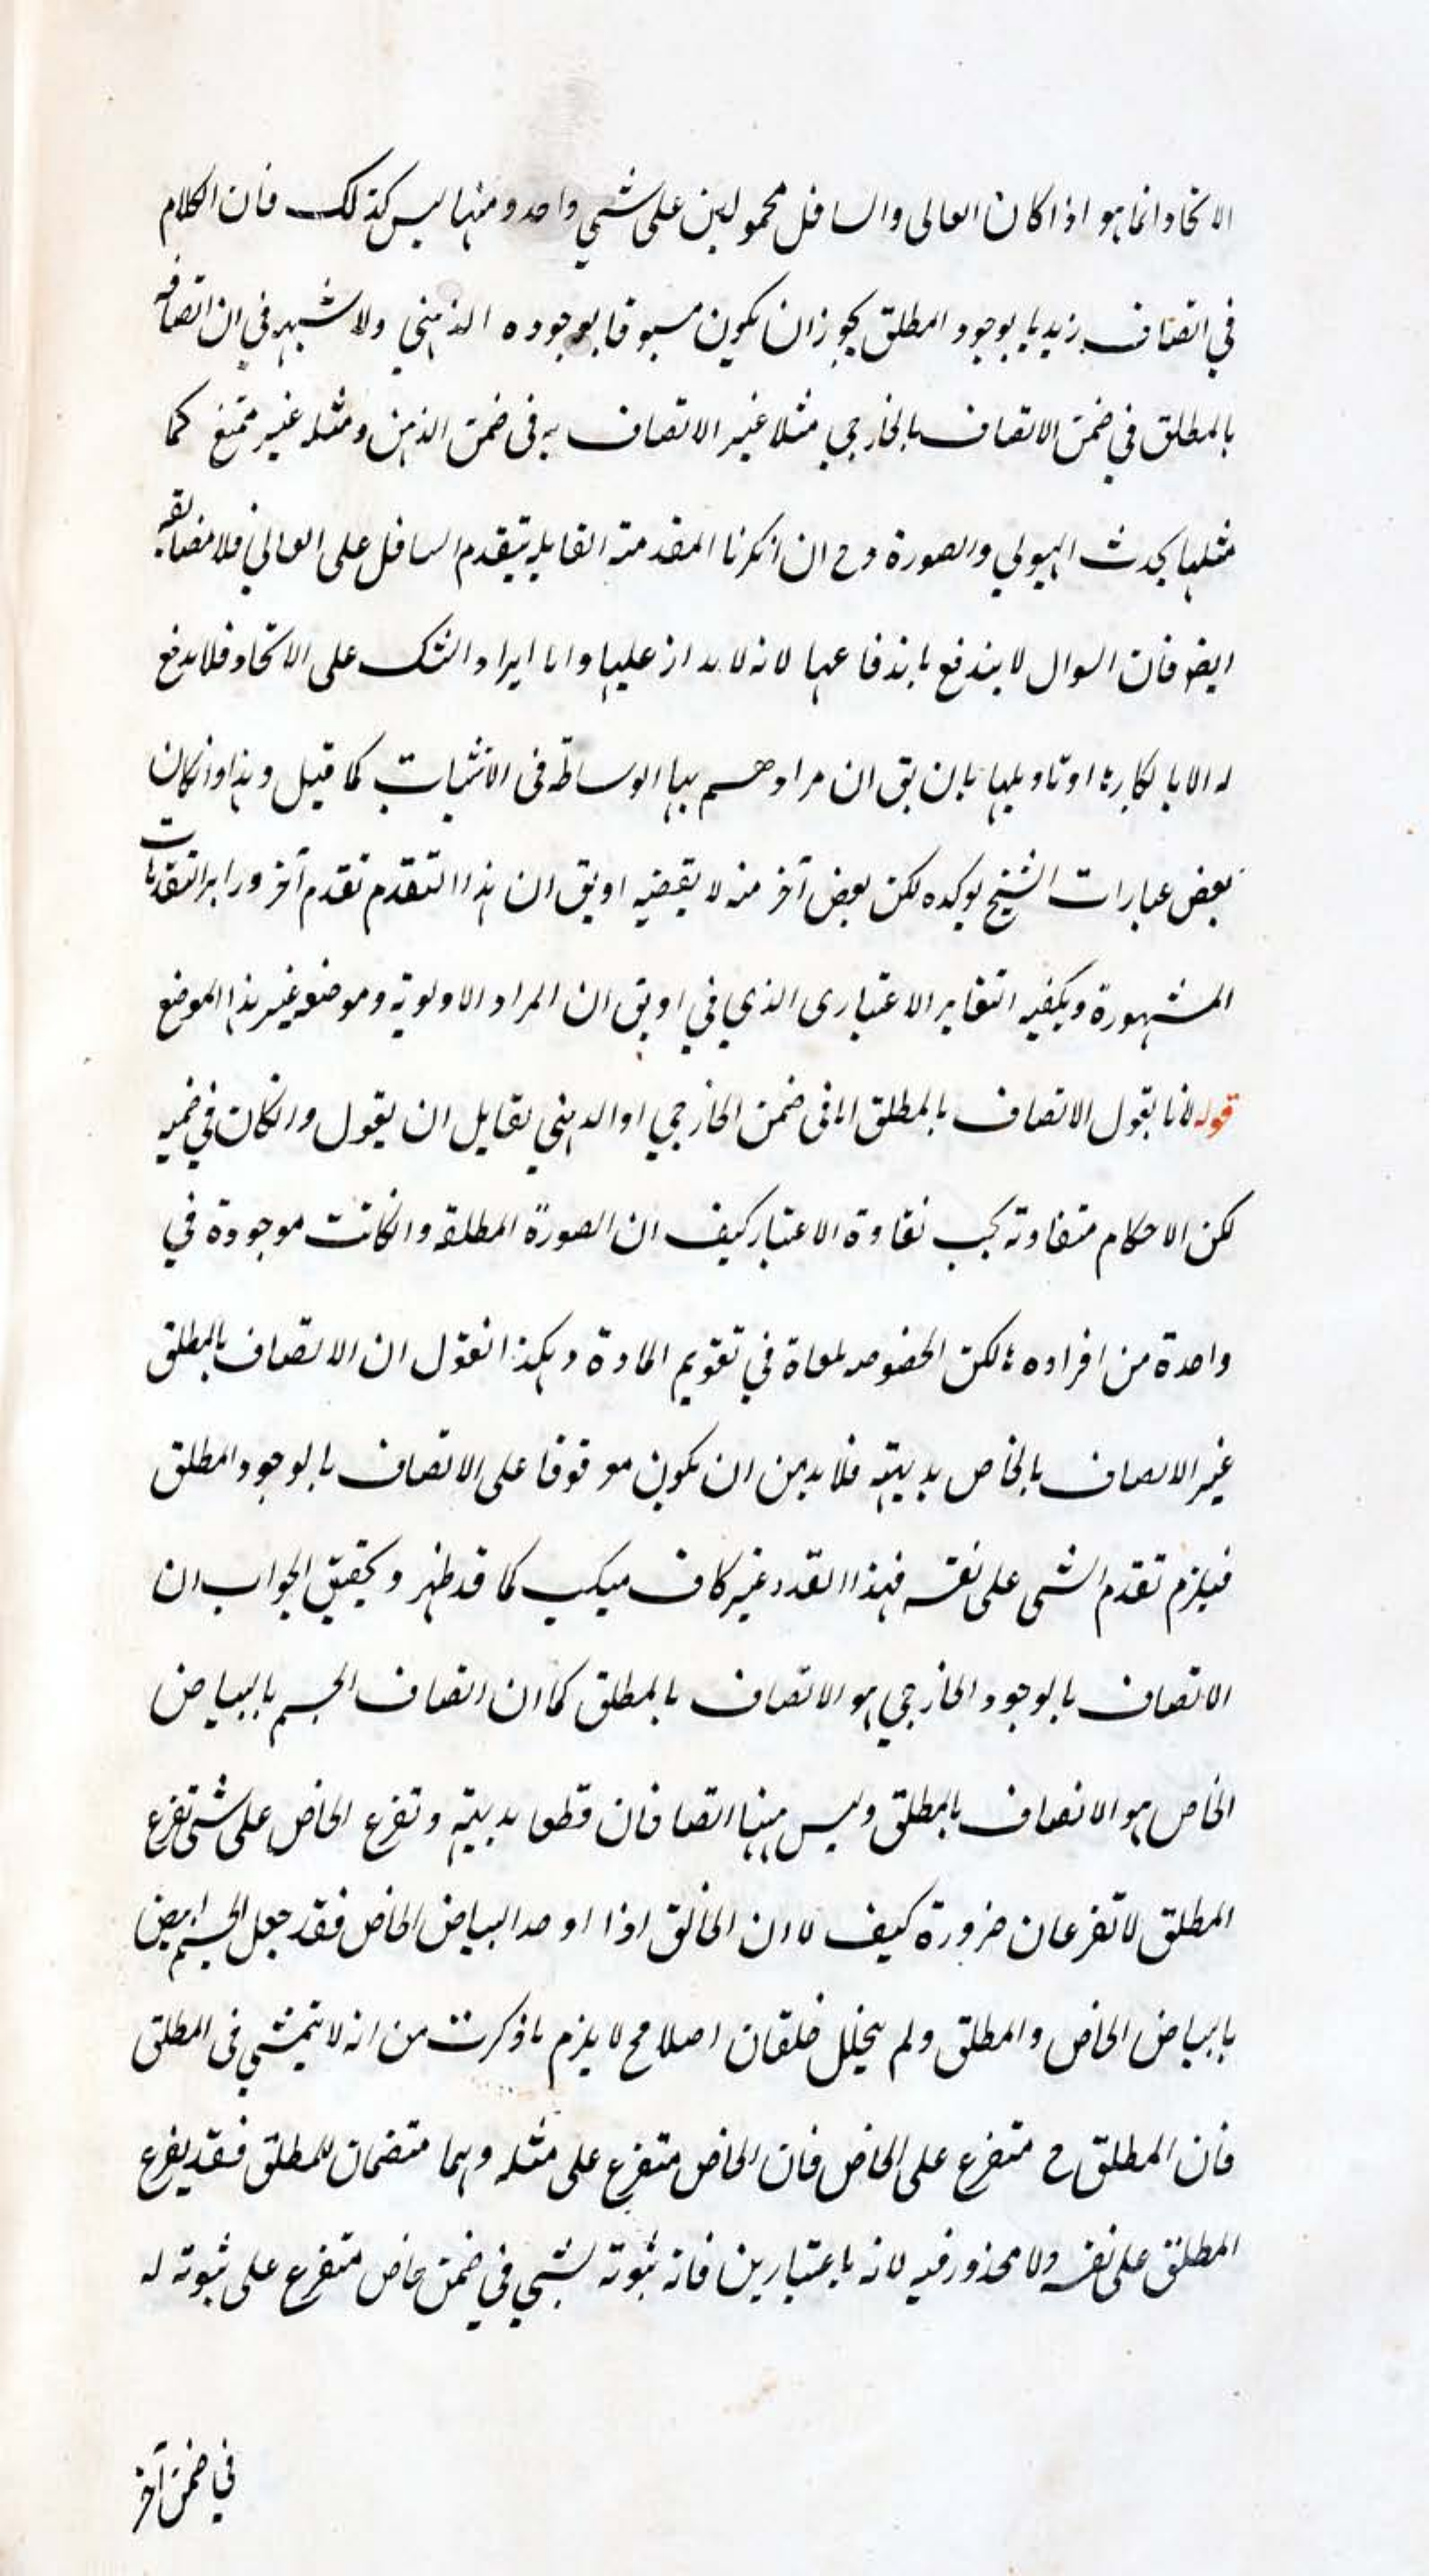 الاتحاد انما هو اذا كان العالى والسافل محمولين على شيء واحد ومنها ليس كذلك فان الكلام
في اتصاف زيد بالوجود المطلق يجوز ان يكون مسبوقا بوجوده الذهني ولا شبهه في ان اتصافه
بالمطلق في ضمن الاتصاف بالخارجي مثلا غير الاتصاف به في ضمن الذهن ومثله غير ممتنع كما
مثلها بحدث الهيولي والصورة وح ان انكرنا المقدمة القايله بتقدم السافل على العالي فلا مضايقه
ايضو فان السوال لا يندفع باندفاعها لانه لا يدار عليها واما ايراد الشك على الاتحاد فلا يدفع
له الا بانكارها او تاويلها بان يق ان مرادهم بها الوساطة فى الاثبات كما قيل وهذا وانكان
بعض عبارات الشيخ يوكده لكن بعض آخر منه لا يقضيه او يق ان هذا التقدم تقدم آخر وراء التقدمات
المشهورة ويكفيه التغاير الاعتبارى الذي في او يق ان المراد الاولوية وموضعه غير هذا الموضع
قوله لانا نقول الاتصاف بالمطلق اما فى ضمن الخارجي او الذهني لقايل ان يقول وانكان في ضمنه
لكن الاحكام متفاوتة بحسب تفاوة الاعتبار كيف ان الصورة المطلقه وانكانت موجودة في
واحدة من افراده ها لكن الخصوصه ملغاة في تقويم المادة وهكذا نقول ان الاتصاف بالمطلق
غير الاتصاف بالخاص بديهة فلا بد من ان يكون موقوفا على الاتصاف بالوجود المطلق
فيلزم تقدم الشى على نفسه فهذا القدر غير كاف ميكب كما قد ظهر وتحقيق الجواب ان
الاتصاف بالوجود الخارجي هو الاتصاف بالمطلق كما ان اتصاف الجسم بالبياض
الخاص هو الاتصاف بالمطلق وليس ههنا اتصافان قطعا بديهة وتفرع الخاص على شى تفرع
المطلق لا تفرعان ضرورة كيف لا وان الخالق اذا اوحد البياض الخاص فقد جعل الجسم ابيض
بالبياض الخاص والمطلق ولم يتخلل خلقان اصلا فح لا يلزم ما ذكرت من انه لا يتمشي فى المطلق
فان المطلق ح متفرع على الخاص فان الخاص متفرع على مثله وهما متضمان للمطلق فقد يفرع
المطلق على نفسه ولا محذور فيه لانه باعتبارين فانه ثبوته لشيي في ضمن خاص متفرع على ثبوته له
في ضمن آخر